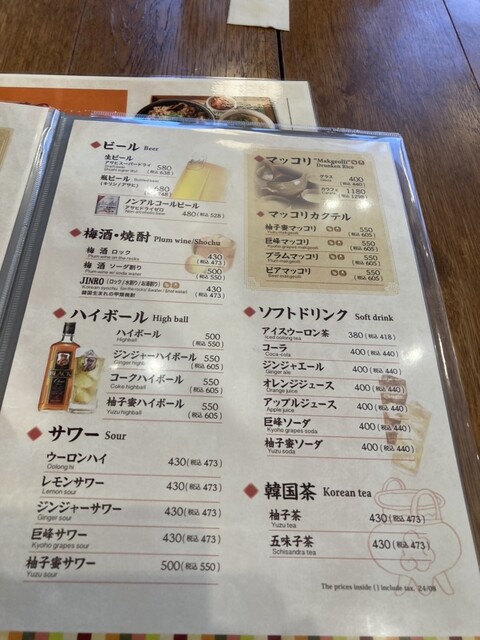 ビール Beer
生ビール 580
アサヒスーパードライ (税込 638)
瓶ビール 680
(キリン/アサヒ) (税込 748)
ノンアルコールビール
アサヒドライゼロ
480(税込 528)
梅酒・焼酎 Plum wine/Shochu
梅酒 ロック 430
Plum wine on the rocks (税込 473)
梅酒 ソーダ割り 500
Plum wine w/ soda water (税込 550)
JINRO (ロック/水割り/お湯割り) 430
韓国生まれの甲類焼酎 (税込 473)
ハイボール High ball
ハイボール 500
Highball (税込 550)
ジンジャーハイボール 550
Ginger highball (税込 605)
コークハイボール 550
Coke highball (税込 605)
柚子蜜ハイボール 550
Yuzu highball (税込 605)
サワー Sour
ウーロンハイ 430(税込 473)
Oolong hi
レモンサワー 430(税込 473)
Lemon sour
ジンジャーサワー 430(税込 473)
Ginger sour
巨峰サワー 430(税込 473)
Kyoho grapes sour
柚子蜜サワー 500(税込 550)
Yuzu sour
マッコリ "Makgeolli"
Drunken Rice
グラス 400
(税込 440)
カラフェ 1180
(税込 1298)
マッコリカクテル
柚子蜜マッコリ 550
Yuzu makgeolli (税込 605)
巨峰マッコリ 550
Kyoho grapes makgeolli (税込 605)
プラムマッコリ 550
Plum makgeolli (税込 605)
ビアマッコリ 550
Beer makgeolli (税込 605)
ソフトドリンク Soft drink
アイスウーロン茶 380(税込 418)
Iced oolong tea
コーラ 400(税込 440)
Coca-cola
ジンジャエール 400(税込 440)
Ginger ale
オレンジジュース 400(税込 440)
Orange juice
アップルジュース 400(税込 440)
Apple juice
巨峰ソーダ 400(税込 440)
Kyoho grapes soda
柚子蜜ソーダ 400(税込 440)
Yuzu soda
韓国茶 Korean tea
柚子茶 430(税込 473)
Yuzu tea
五味子茶 430(税込 473)
Schisandra tea
The prices inside ( ) include tax. 24/08